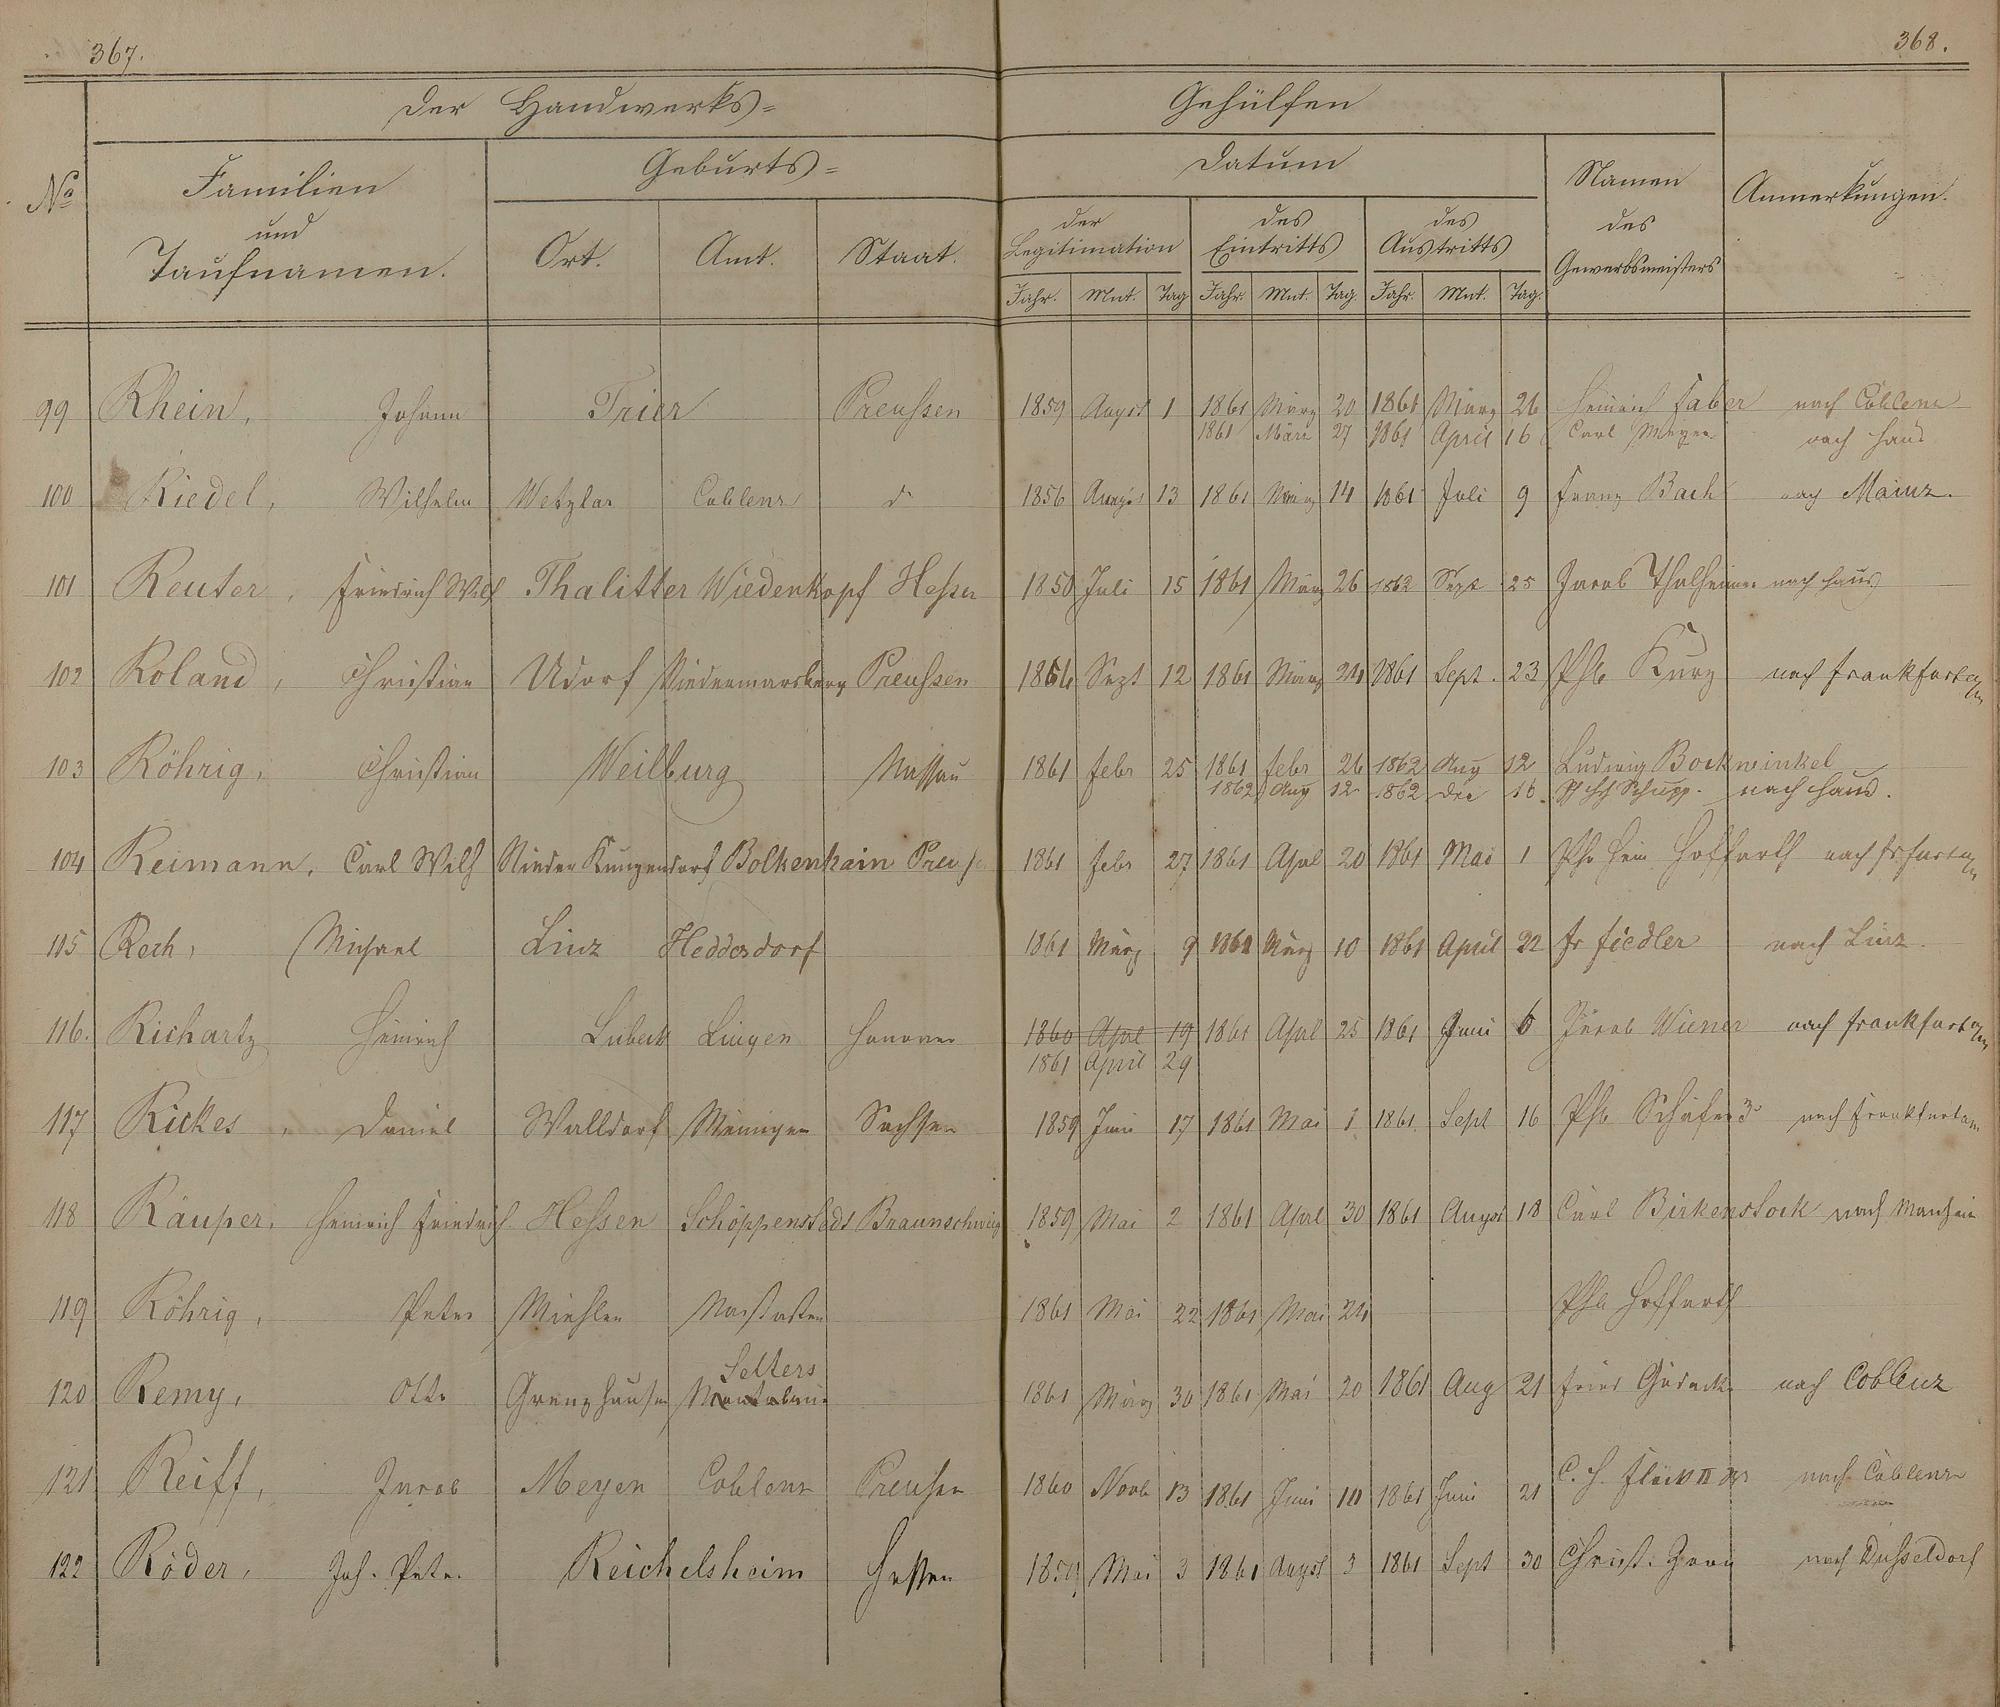 367.
368.
Der Handwerks= Gehülfen
No
Familien und Taufnamen.
Geburts=
Ort. Amt. Staat.
Datum
der Legitimation
des Eintritts
des Austritts
Jahr. Mnt. Tag Jahr. Mnt. Tag. Jahr. Mnt. Tag.
Namen des Gewerbsmeisters
Anmerkungen.
99 Rhein, Johann Trier Preußen 1859 August 1 1861 März 20 1861 März 26 Heinrich Faber nach Coblenz
1861 März 27 1861 April 16 Carl Meyer nach Haus
100 Riedel, Wilhelm Wetzlar Coblenz do 1856 August 13 1861 März 14 1861 Juli 9 Franz Bach nach Mainz.
101 Reuter, Friedrich Wilh Thalitter Wiedenkopf Hessen 1850 Juli 15 1861 März 26 1862 Sept 25 Jacob Thalheimer nach Haus
102 Roland, Christian Udorf Niedermarsberg Preußen 1856 Sept 12 1861 März 24 1861 Sept. 23 Phl Kurz nach Frankfurt a/m
103 Röhrig, Christian Weilburg Nassau 1861 Febr 25 1861 Febr 26 1862 Aug 12 Ludwig Bockwinkel
1862 Aug 12 1862 Dec 16 Schupp. nach Haus.
104 Reimann, Carl Wilh Nieder Kunzendorf Bolkenhain Preuß 1861 Febr 27 1861 April 20 1861 Mai 1 Phl Hein Hoffarth nach Frfurt a/m
115 Rech, Michael Linz Heddesdorf 1861 März 9 1861 März 10 1861 April 22 Fr Fiedler nach Linz.
116. Richartz Heinrich Lübeck Lingen Hanover 1860 April 19 1861 April 25 1861 Juni 6 Jacob Wiener nach Frankfurt a/m
1861 April 29
117 Rickes, Daniel Walldorf Meinigen Sachsen 1859 Juni 17 1861 Mai 1 1861 Sept 16 Phl Schäfer 3r nach Frankfurt am
118 Räuper, Heinrich Friedrich Hessen Schöppenstedt Braunschweig 1859 Mai 2 1861 April 30 1861 August 18 Carl Birkenstock nach Manheim
119 Röhrig, Peter Miehlen Nastätten 1861 Mai 22 1861 Mai 24 Phl Hoffarth
Selters
120 Remy, Otto Grenzhausen Montabaur 1861 März 30 1861 Mai 20 1861 Aug 21 nach Coblenz
121 Reiff, Jacob Meyen Coblenz Preußen 1860 Novb 13 1861 Juni 10 1861 Juni 21 C. H. Flück II nach Coblenz
122 Röder, Joh. Peter Reichelsheim Hessen 1859 Mai 3 1861 August 3 1861 Sept 30 Christ. Zorn nach Dusseldorf